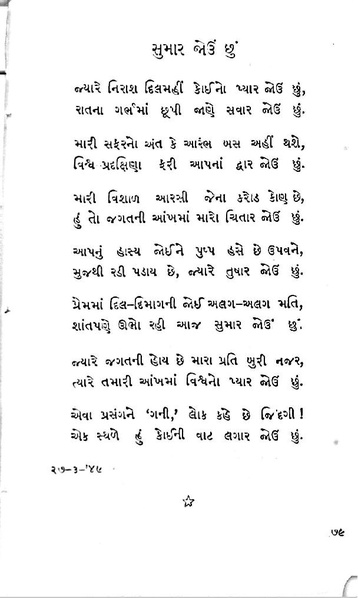 સુમાર જોઉં છું
જ્યારે નિરાશ દિલમહીં કોઈનો પ્યાર જોઉં છું,
રાતના ગર્ભમાં છૂપી જાણે સવાર જોઉં છું.
મારી સફરનો અંત કે આરંભ બસ અહીં થશે,
વિશ્વ પ્રદક્ષિણા ફરી આપનાં દ્વાર જોઉં છું.
મારી વિશાળ આરસી જેના કરોડ કોણ છે,
હું તો જગતની આંખમાં મારો ચિતાર જોઉં છું.
આપનું હાસ્ય જોઈને પુષ્પ હસે છે ઉપવને,
મુજથી રડી પડાય છે, જ્યારે તુષાર જોઉં છું.
પ્રેમમાં દિલ-દિમાગની જોઈ અલગ-અલગ મતિ,
શાંતપણે ઊભો રહી આજ સુમાર જોઉં છું.
જ્યારે જગતની હોય છે મારા પ્રતિ બુરી નજર,
ત્યારે તમારી આંખમાં વિશ્વનો પ્યાર જોઉં છું.
એવા પ્રસંગને ‘ગની,’ લોક કહે છે જિંદગી!
એક સ્થળે હું કોઈની વાટ લગાર જોઉં છું.
૨૭-૩-’૪૫
૭૯